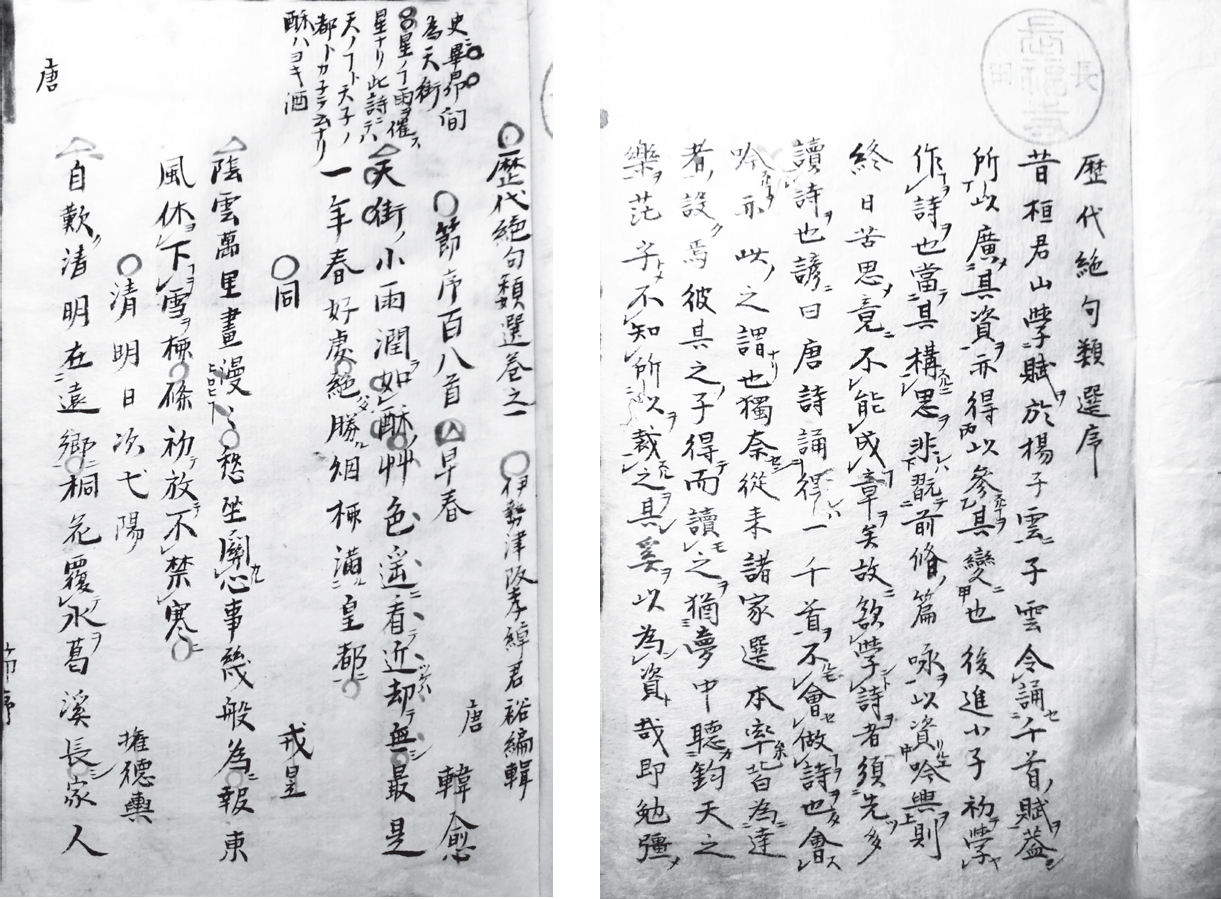 歷代絕句類選序
昔桓君山學賦於楊子雲子雲令誦千首賦蓋
所以廣其資亦得以參其變也後進小子初學
作詩也當其構思非翫前脩篇咏以資吟興則
終日苦思竟不能成章矣故欲學詩者須先多
讀詩也諺曰唐詩誦得一千首不會做詩也會
吟亦此之謂也獨奈從来諸家選本率皆為達
者設焉彼其之子得而讀之猶夢中聽鈞天之
樂茫乎不知所以裁之其奚以為資哉即勉彊
歷代絕句類選卷之一 伊勢津阪孝綽君裕編輯
節序百八首 早春 唐 韓愈
天街小雨潤如酥艸色遥看近却無最是
一年春好處絕勝烟柳滿皇都
同 戎昱
陰雲萬里晝漫〻愁坐關心事幾般為報東
風休下雪柳條初放不禁寒
清明日次弋陽 權德輿
自歎清明在遠鄉桐花覆水葛溪長家人
史畢昴间
為天街
星ナリ此詩ニテハ
天ノコト天子ノ
酥ハヨキ酒
唐